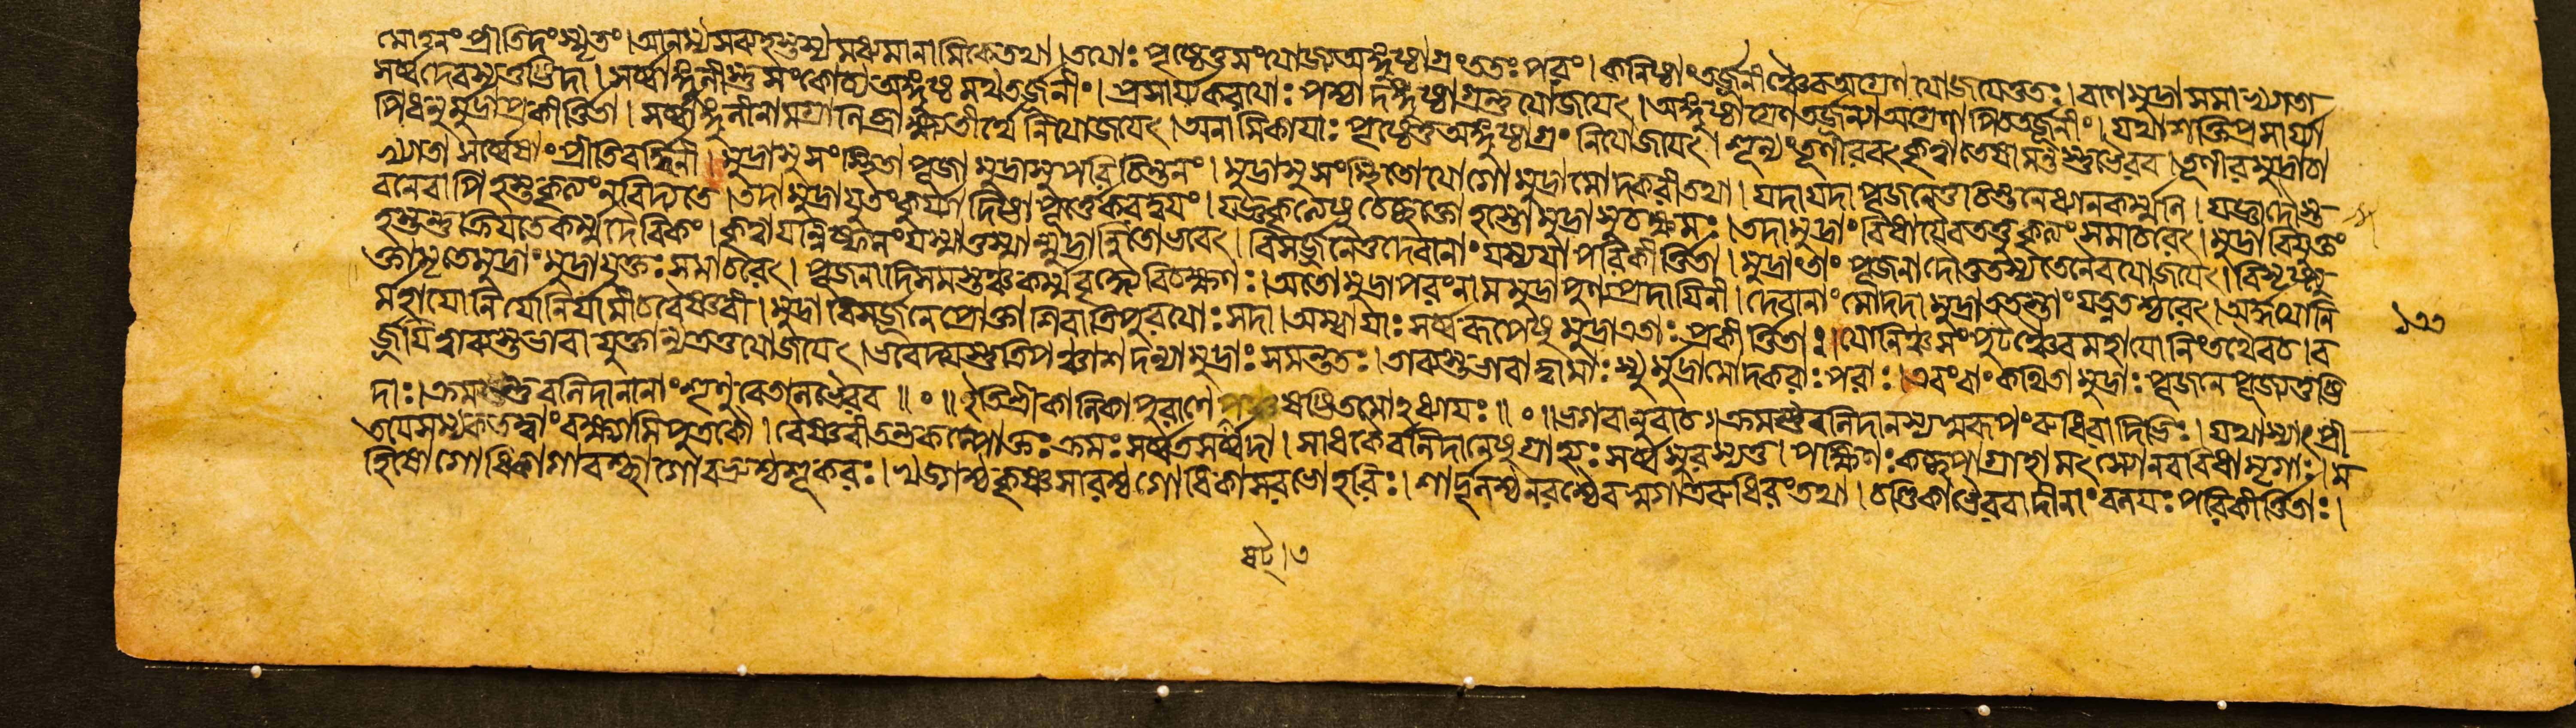 মোহনং প্রীতিদং স্মৃতং । আনম্য সব্যহস্তস্য মধ্যমানামিকে তথা । তয়োঃ পৃষ্ঠে তু সংযোজ্য অঙ্গুষ্ঠাগ্রং ততঃ পরং । কনিষ্ঠাং তর্জ্জনীঞ্চৈব অগ্রেণ যোজয়েত্ততঃ । বাণমুদ্রা সমাখ্যাতা
সর্ব্বদেবস্য তুষ্টিদা । সর্ব্বাঙ্গুলীস্তু সংকোচ্য অঙ্গুষ্ঠমথ তর্জ্জনীং । প্রসার্য্য করয়োঃ পশ্চাদঙ্গুষ্ঠাগ্রন্তু যোজয়েৎ । অঙ্গুষ্ঠাগ্রেণ তর্জ্জন্যা অগ্রেণাপি চ তর্জ্জনীং । যথাশক্তি প্রসার্য্যা
পি ধনুমুদ্রা প্রকীর্ত্তিতা । সর্ব্বাঙ্গুলীনামগ্রানি ব্রাহ্ম্যতীর্থে নিযোজয়েৎ । অনামিকায়াঃ পৃষ্ঠে তু অঙ্গুষ্ঠাগ্রং নিযোজয়েৎ । শূন্যং তূণীরবৎ কৃত্বা তেষামন্তস্তু ভৈরব । তূণীরমুদ্রা চা
খ্যাতা সর্ব্বেষাং প্রীতিবর্দ্ধিনী । মুদ্রাসু সংস্থিতা পূজা মুদ্রাসু পরিচিন্তনং । মুদ্রাসু সংস্থিতো যোগো মুদ্রা মোদকরী তথা । যদা যদা পূজনে তু চিন্তনে ধ্যানকর্ম্মনি । যজ্ঞাদৌ স্ত
বনে বাপি হস্তকৃত্যং ন বিদ্যতে । তদা মুদ্রাযুতং কুর্য্যাদ্দিষ্টা পূর্ত্তে করদ্বয়ং । যজ্ঞকৃত্যেষু চেচ্ছক্তো হস্তো মুদ্রাসু চঞ্চমঃ । তদা মুদ্রাং বিধায়ৈব তত্তু কৃত্যং সমাচরেৎ । মুদ্রাবিযুক্তং
হস্তন্তু ক্রিয়তে কর্ম্ম দৈবিকং । কৃত্বা যন্নিষ্ফলং যস্মাত্তস্মান্মুদ্রান্বিতো ভবেৎ । বিসর্জ্জনে তু দেবানাং যস্য যা পরিকীর্ত্তিতা । মুদ্রাং তাং পূজনাদৌ তু তস্য তেনৈব যোজয়েৎ । বিসৃষ্ট্যু
ক্তামৃতে মুদ্রাং মুদ্রাযুক্তঃ সমাচরেৎ । পূজনাদি সমস্তঞ্চ কর্ম্মবৃক্ষ্যে বিচক্ষণঃ । অতো মুদ্রা পরং নাম মুদ্রা পুণ্যপ্রদায়িনী । দেবানাং মোদদা মুদ্রা এতস্তাং যত্নতশ্চরেৎ । অর্দ্ধযোনি
র্মহাযোনির্যোনির্যামী চ বৈষ্ণবী । মুদ্রা বিসর্জ্জনে প্রোক্তা শিবাত্রিপুরয়োঃ সদা । অম্বায়াঃ সর্ব্বরূপেষু মুদ্রা এতাঃ প্রকীর্ত্তিতাঃ । যোনিঞ্চ সংপুটঞ্চৈব মহাযোনিং তথৈব চ । ব
র্জ্জয়িত্বা বস্তুভাবা যুক্তান্যত্র তু যোজয়েৎ । ভবেদ্যস্তু ত্রিপঞ্চাশদন্যা মুদ্রাঃ সমন্ততঃ । তা বস্তুভাবাদ্বামাঃ স্যুর্মুদ্রা মোদকরাঃ পরাঃ । এবং বাং কথিতা মুদ্রাঃ পূজনে পূজ্যতুষ্টি
দাঃ । ক্রমন্তু বলিদানানাং শৃণু বেতালভৈরব ॥ ० ॥ ইতি শ্রীকালিকাপুরাণে ষষ্ঠিতমোঽধ্যায়ঃ ॥ ० ॥ ভগবানুবাচ । ক্রমন্তু বলিদানস্য স্বরূপং রুধিরাদিভিঃ । যথা স্যাৎ প্রী
তয়ে সম্যক তদ্বাং বক্ষ্যামি পুত্রকৌ । বৈষ্ণবীতন্ত্রকল্পোক্তঃ ক্রমঃ সর্ব্বত্র সর্ব্বদা । সাধকৈর্বলিদানেষু গ্রাহ্যঃ সর্ব্বসুরস্য তু । পক্ষিণঃ কচ্ছপা গ্রাহা মৎস্যা নববিধা মৃগাঃ । ম
হিষো গোধিকা গাবশ্ছাগো বভ্রুশ্চ শূকরঃ । খড়্গশ্চ কৃষ্ণসারশ্চ গোধিকা সরভো হরিঃ । শার্দ্দূলশ্চ নরশ্চৈব স্বগাত্ররুধিরং তথা । চণ্ডিকাভৈরবাদীনাং বলয়ঃ পরিকীর্ত্তিতাঃ ।
১৩৩
ষট্ । ৩